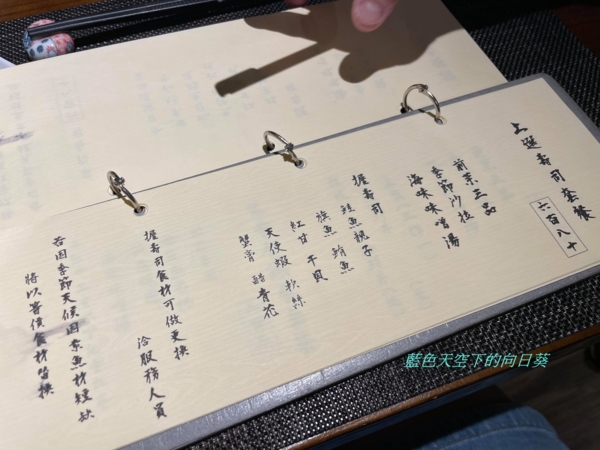 上選壽司套餐
六百八十
前菜三品
季節沙拉
海味味噌湯
握壽司
鮭魚親子
旗魚 鮪魚
紅甘 干貝
天使蝦 軟絲
蟹膏 醋青花
握壽司食材可做更換
洽服務人員
若因季節天候因素魚材短缺
將以等值食材替換
藍色天空下的向日葵